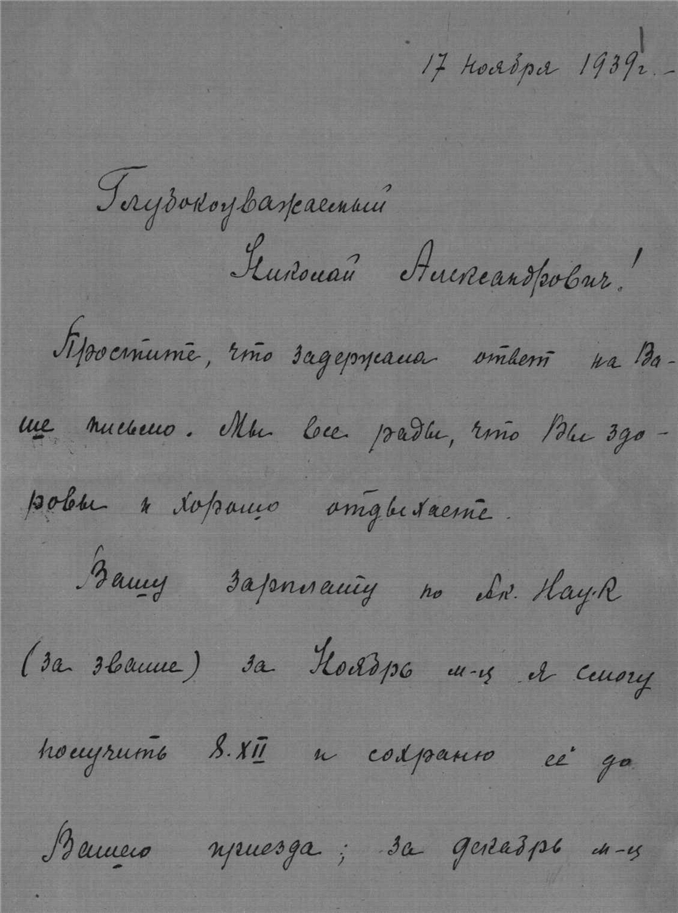 17 ноября 1939 г.
Глубокоуважаемый
Николай Александрович!
Простите, что задержала ответ на Ва-
ше письмо. Мы все рады, что Вы здо-
ровы и хорошо отдыхаете.
Вашу зарплату по Ак. Наук
(за звание) за Ноябрь м-ц я смогу
получить 8.XII и сохраню её до
Вашего приезда; за декабрь м-ц